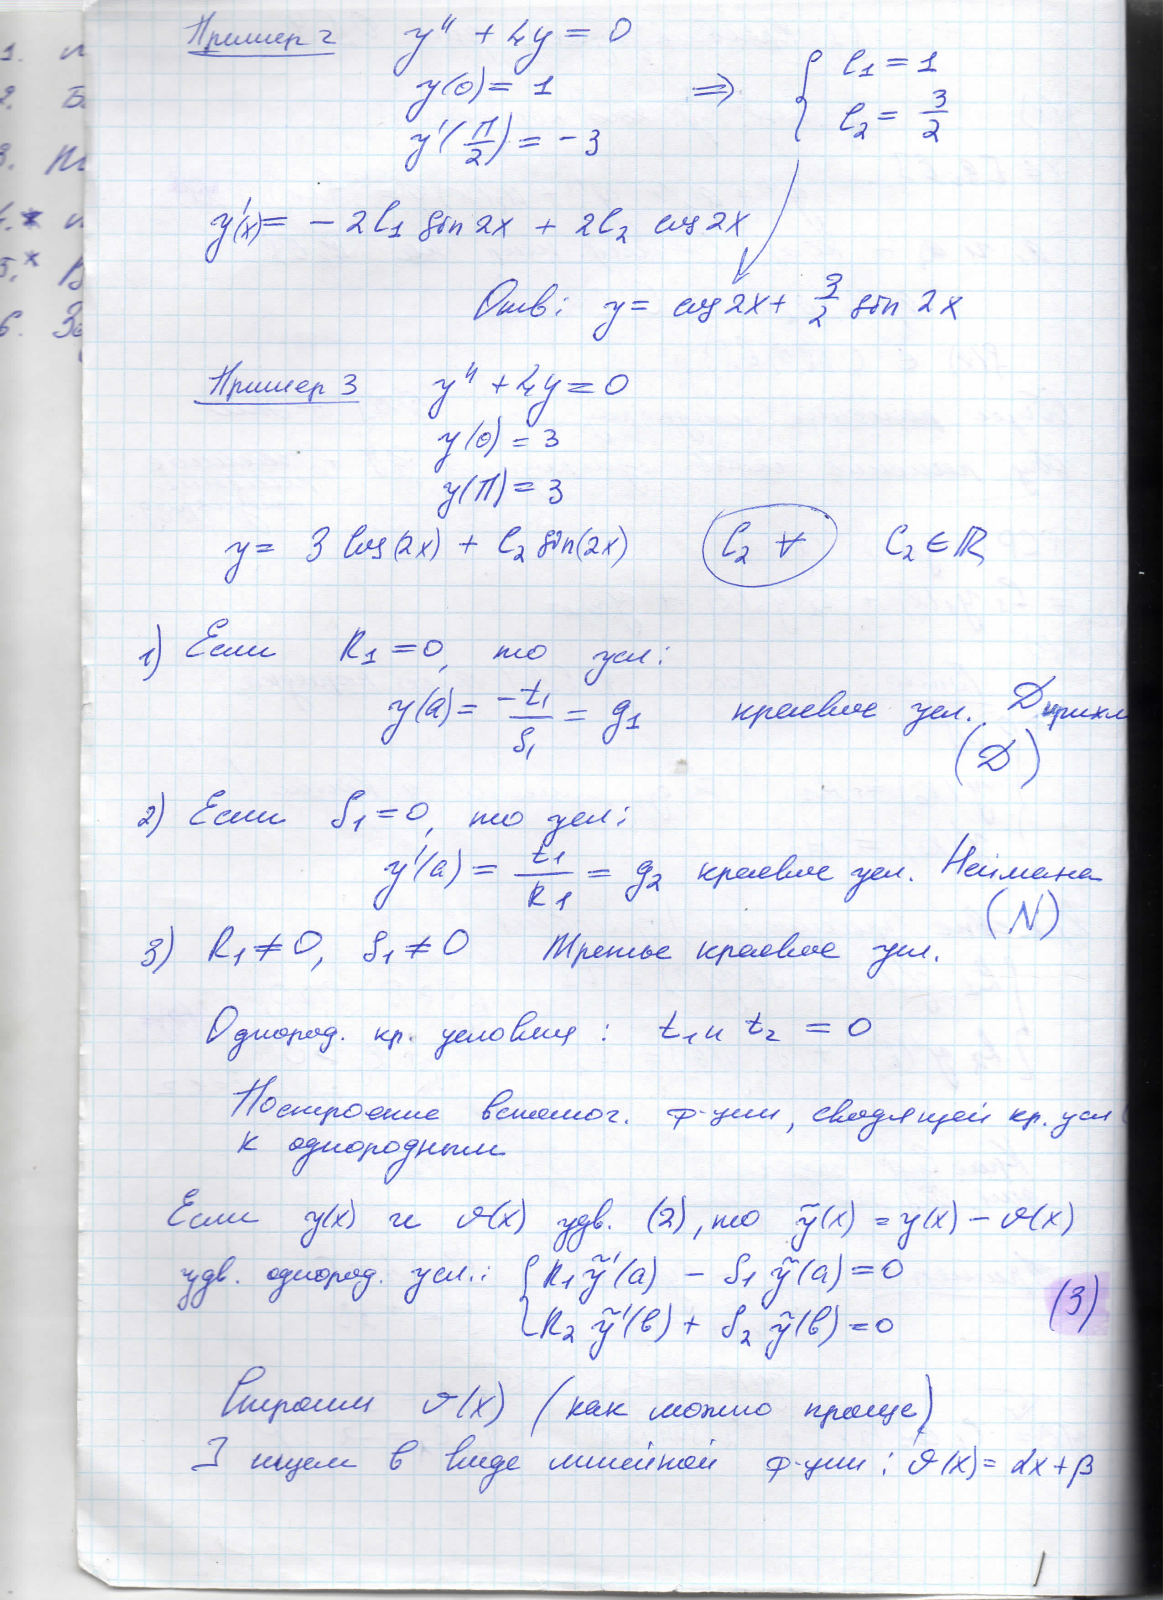 1. п
2. Б
3. пе
4.* п
5.* В
6. За
Пример 2 y'' + 4y = 0
y(0) = 1 ⇒ { C₁ = 1
y'(π/2) = -3 C₂ = 3/2
y'(x) = -2C₁ sin 2x + 2C₂ cos 2x
Отв: y = cos 2x + 3/2 sin 2x
Пример 3 y'' + 4y = 0
y(0) = 3
y(π) = 3
y = 3 cos(2x) + C₂ sin(2x) C₂ ∀ C₂ ∈ ℝ
1) Если R₁ = 0, то усл:
y(a) = -t₁/S₁ = g₁ краевое усл. Дирихл
(D)
2) Если S₁ = 0, то усл:
y'(a) = t₁/R₁ = g₂ краевое усл. Неймана
(N)
3) R₁ ≠ 0, S₁ ≠ 0 Третье краевое усл.
Однород. кр. условия : t₁ и t₂ = 0
Построение вспомог. ф-ции, сводящей кр. усл
к однородным
Если y(x) и ϑ(x) удв. (2), то ỹ(x) = y(x) - ϑ(x)
удв. однород. усл.: { R₁ ỹ'(a) - S₁ ỹ(a) = 0
R₂ ỹ'(b) + S₂ ỹ(b) = 0 (3)
Строим ϑ(x) (как можно проще)
I ищем в виде линейной ф-ции : ϑ(x) = αx + β